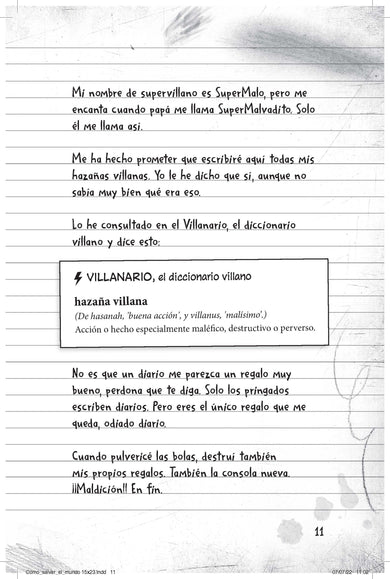 Mi nombre de supervillano es SuperMalo, pero me
encanta cuando papá me llama SuperMalvadito. Solo
él me llama así.
Me ha hecho prometer que escribiré aquí todas mis
hazañas villanas. Yo le he dicho que sí, aunque no
sabía muy bien qué era eso.
Lo he consultado en el Villanario, el diccionario
villano y dice esto:
VILLANARIO, el diccionario villano
hazaña villana
(De hasanah, 'buena acción', y villanus, 'malísimo'.)
Acción o hecho especialmente maléfico, destructivo o perverso.
No es que un diario me parezca un regalo muy
bueno, perdona que te diga. Solo los pringados
escriben diarios. Pero eres el único regalo que me
queda, odiado diario.
Cuando pulvericé las bolas, destruí también
mis propios regalos. También la consola nueva.
¡¡Maldición!! En fin.
11
Como_salvar_el_mundo 15x23.indd 11
07/07/22 11:02